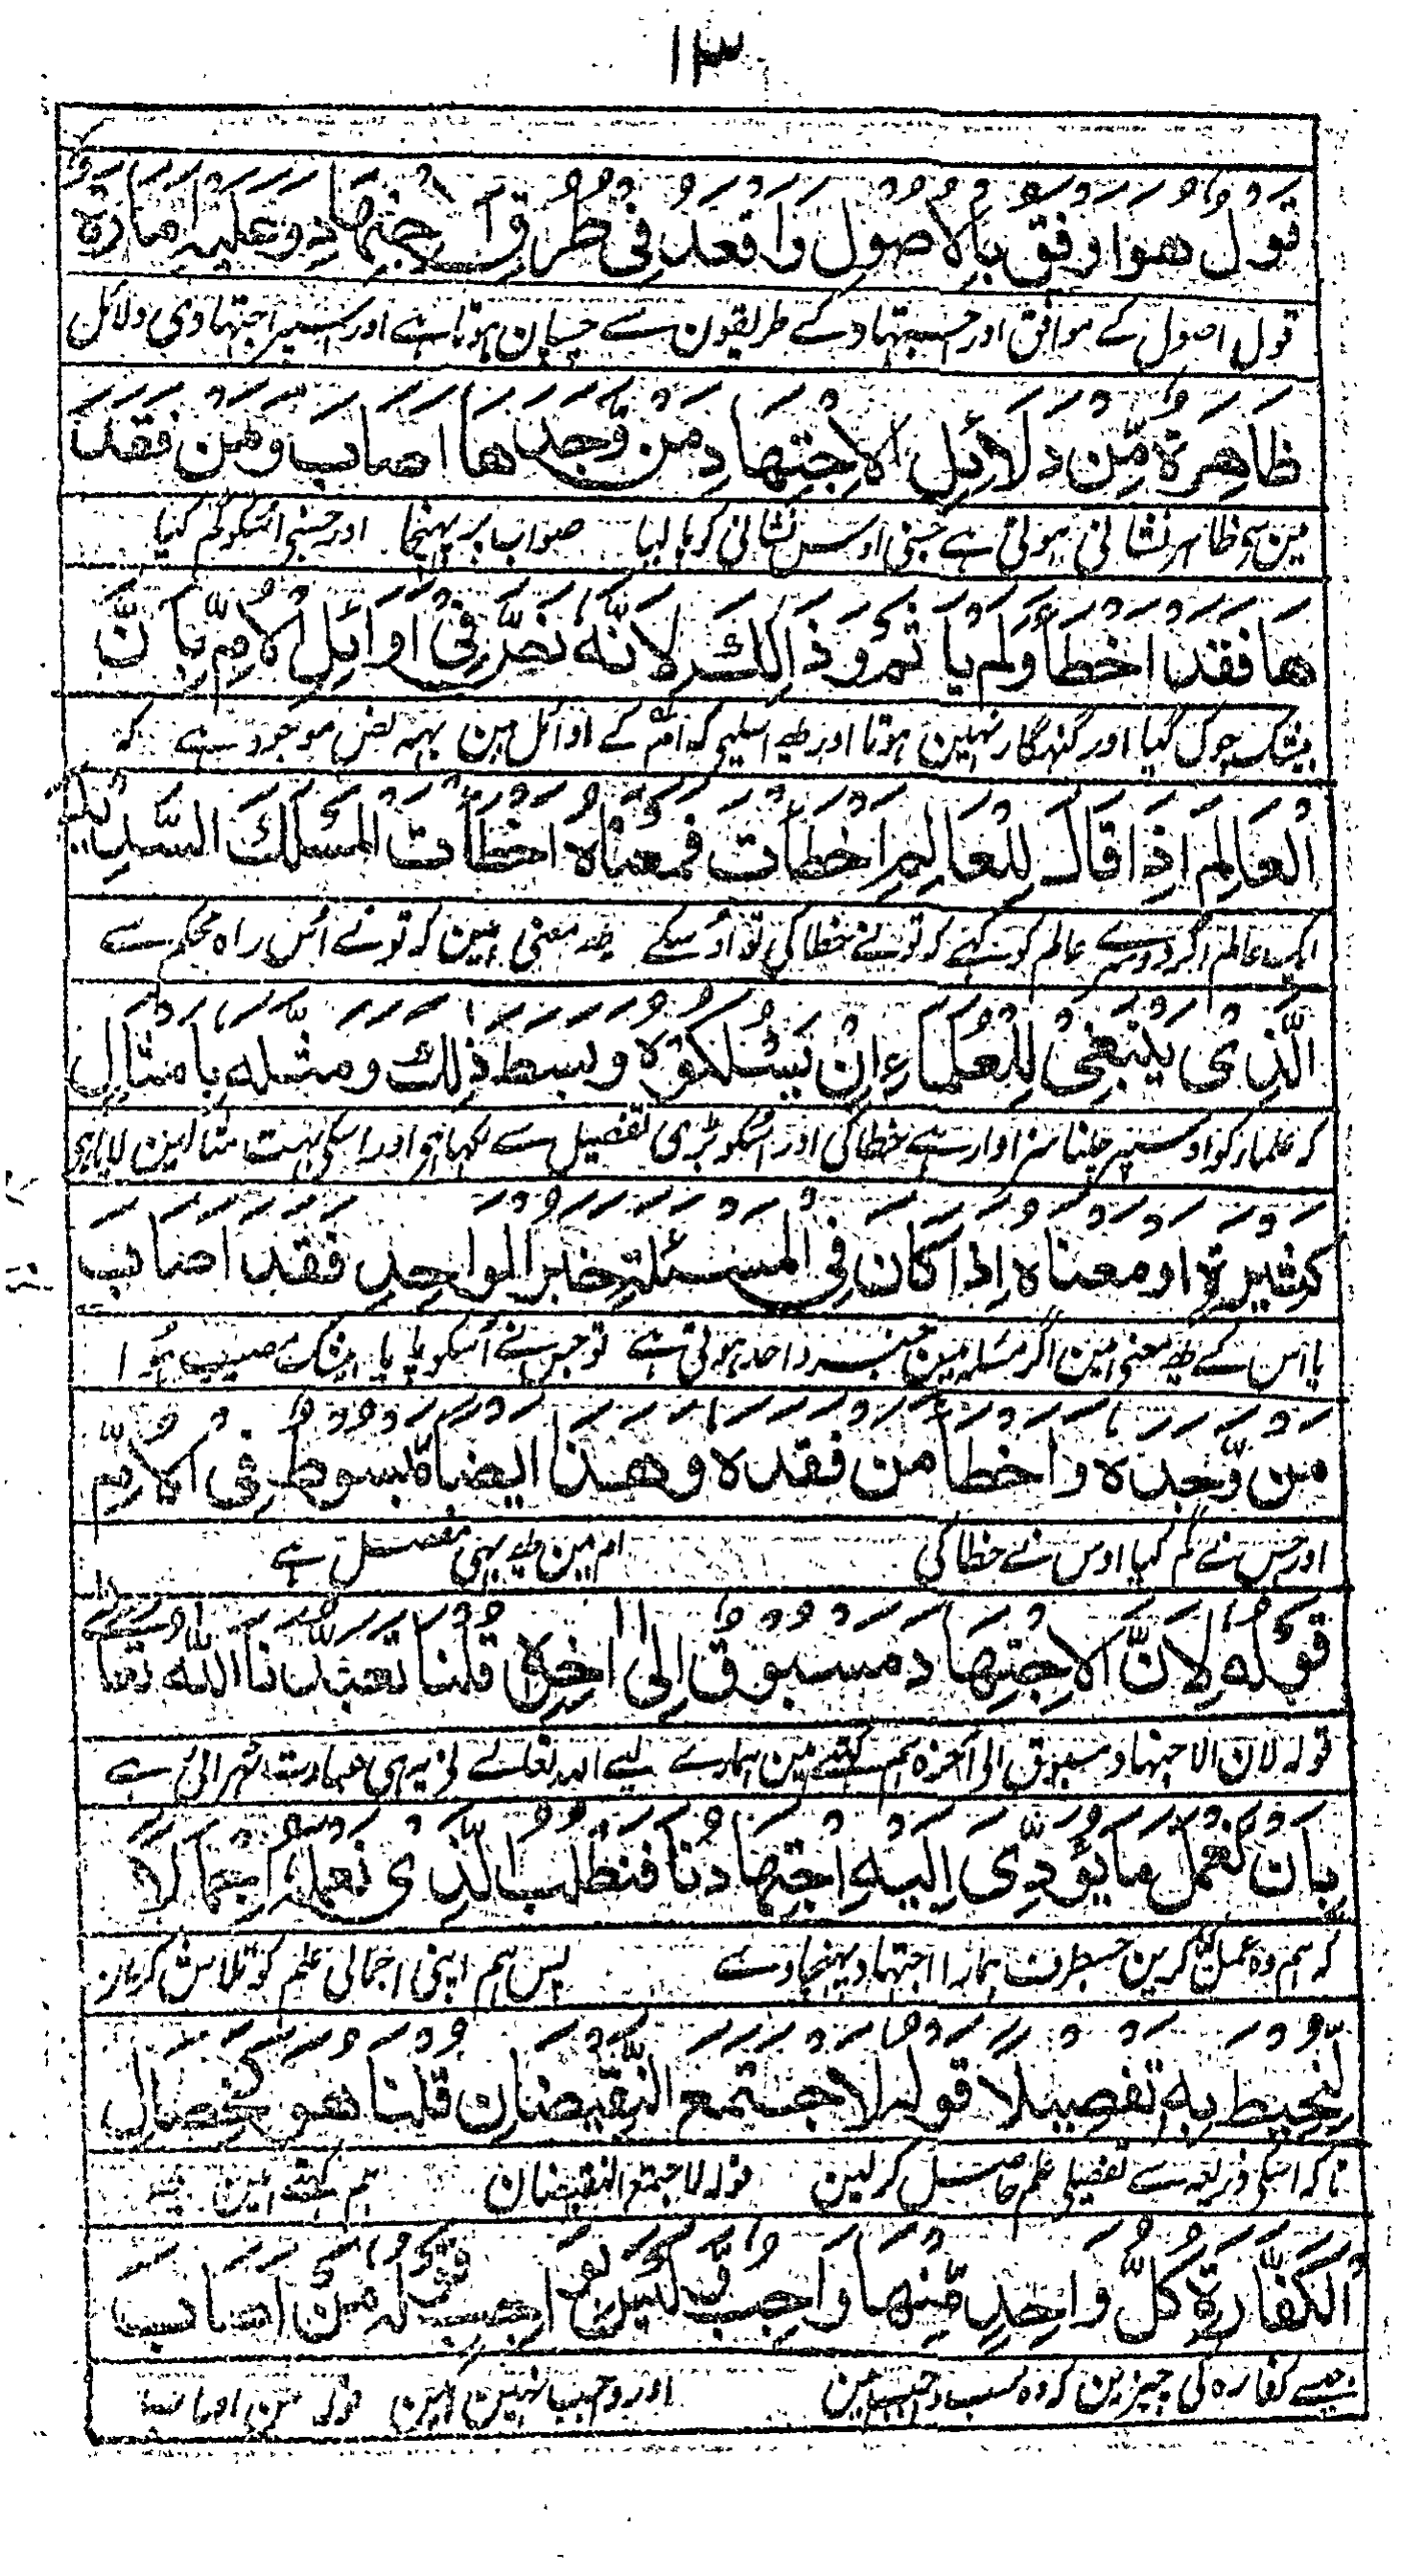 ۱۳
قَوْلٌ هُوَ اَوْفَقُ بِالْاُصُوْلِ وَاَقْعَدُ فِیْ طُرُقِ الْاِجْتِهَادِ وَعَلَیْهِ اَمَارَةٌ
قول اصول کے موافق اور اجتہاد کے طریقون سے چسپان ہوتا ہے اور اسپر اجتہادی دلائل
ظَاهِرَةٌ مِّنْ دَلَائِلِ الْاِجْتِهَادِ مَنْ وَّجَدَهَا اَصَابَ وَمَنْ فَقَدَ
مین سے ظاہر نشانی ہوتی ہے جسنی اوس نشانی کو پا لیا صواب پر پہنچا اور جسنی اُسکو گم کیا
هَا فَقَدْ اَخْطَاَ وَلَمْ یَاْثَمْ وَذَالِكَ لِاَنَّهُ نَصَّ فِیْ اَوَائِلِ الْاُمِّ بِاَنَّ
بیشک چوک گیا اور گنہگار نہین ہوتا اور یہ اسلیے کہ اُم کے اوائل مین یہہ نص موجود ہے کہ
الْعَالِمَ اِذَا قَالَ لِلْعَالِمِ اَخْطَأْتَ فَمَعْنَاهُ اَخْطَأْتَ الْمَسْلَكَ السَّدِیْدَ
ایک عالم اگر دوسرے عالم کو کہے کہ تو نے خطا کی تو اُسکے یہ معنی ہین کہ تو نے اُس راہ محکم سے
الَّذِیْ یَنْبَغِیْ لِلْعُلَمَاءِ اَنْ یَسْلُکُوْهُ وَبَسَطَ ذٰلِكَ وَمَثَّلَهُ بِاَمْثَالٍ
کہ علماء کو اوسپر چلنا سزاوار ہے خطا کی اور اُسکو بڑی تفصیل سے لکھا ہی اور اسکی بہت مثالین لایا ہی
کَثِیْرَةٍ اَوْ مَعْنَاهُ اِذَا کَانَ فِی الْمَسْئَلَةِ خَبَرُ الْوَاحِدِ فَقَدْ اَصَابَ
یا اس کے یہ معنی ہین اگر مسئلہ مین خبر واحد ہوتی ہے تو جس نے اُسکو پایا بیشک مصیب ہُوا
مَنْ وَّجَدَهُ وَاَخْطَأَ مَنْ فَقَدَهُ وَهٰذَا اَیْضًا مَّبْسُوْطٌ فِی الْاُمِّ
اور جس نے گم کیا اوس نے خطا کی ام مین یہ بھی مفصل ہے
قَوْلُهُ لِاَنَّ الْاِجْتِهَادَ مَسْبُوْقٌ اِلٰی اٰخِرِهٖ قُلْنَا تَعَبَّدَنَا اللّٰهُ تَعَالٰی
قولہ لان الاجتہاد مسبوق الی آخرہ ہم کہتے ہین ہمارے لیے اللہ تعالے نی یہی عبادت ٹھرائی ہے
بِاَنْ نَعْمَلَ مَا یُؤَدِّیْ اِلَیْهِ اجْتِهَادُنَا فَنَطْلُبُ الَّذِیْ نَعْلَمُهُ اِجْمَالًا
کہ ہم وہ عمل کرین جسطرف ہمارا اجتہاد پہنچادے پس ہم اپنی اجمالی علم کو تلاش کرتے
لِنُحِیْطَ بِهٖ تَفْصِیْلًا قَوْلُهُ لَاجْتَمَعَ النَّقِیْضَانِ قُلْنَا هُوَ کَخِصَالِ
تاکہ اسکی ذریعہ سے تفصیلی علم حاصل کرلین قولہ لاجتمع النقیضان ہم کہتے ہین یہ
الْکَفَّارَةِ کُلُّ وَاحِدٍ مِّنْهَا وَاجِبٌ وَّلَیْسَ بِوَاجِبٍ قَوْلُهُ مَنْ اَصَابَ
جیسے کفارہ کی چیزین کہ وہ سب واجب ہین اور واجب نہین ہین قولہ من اصاب